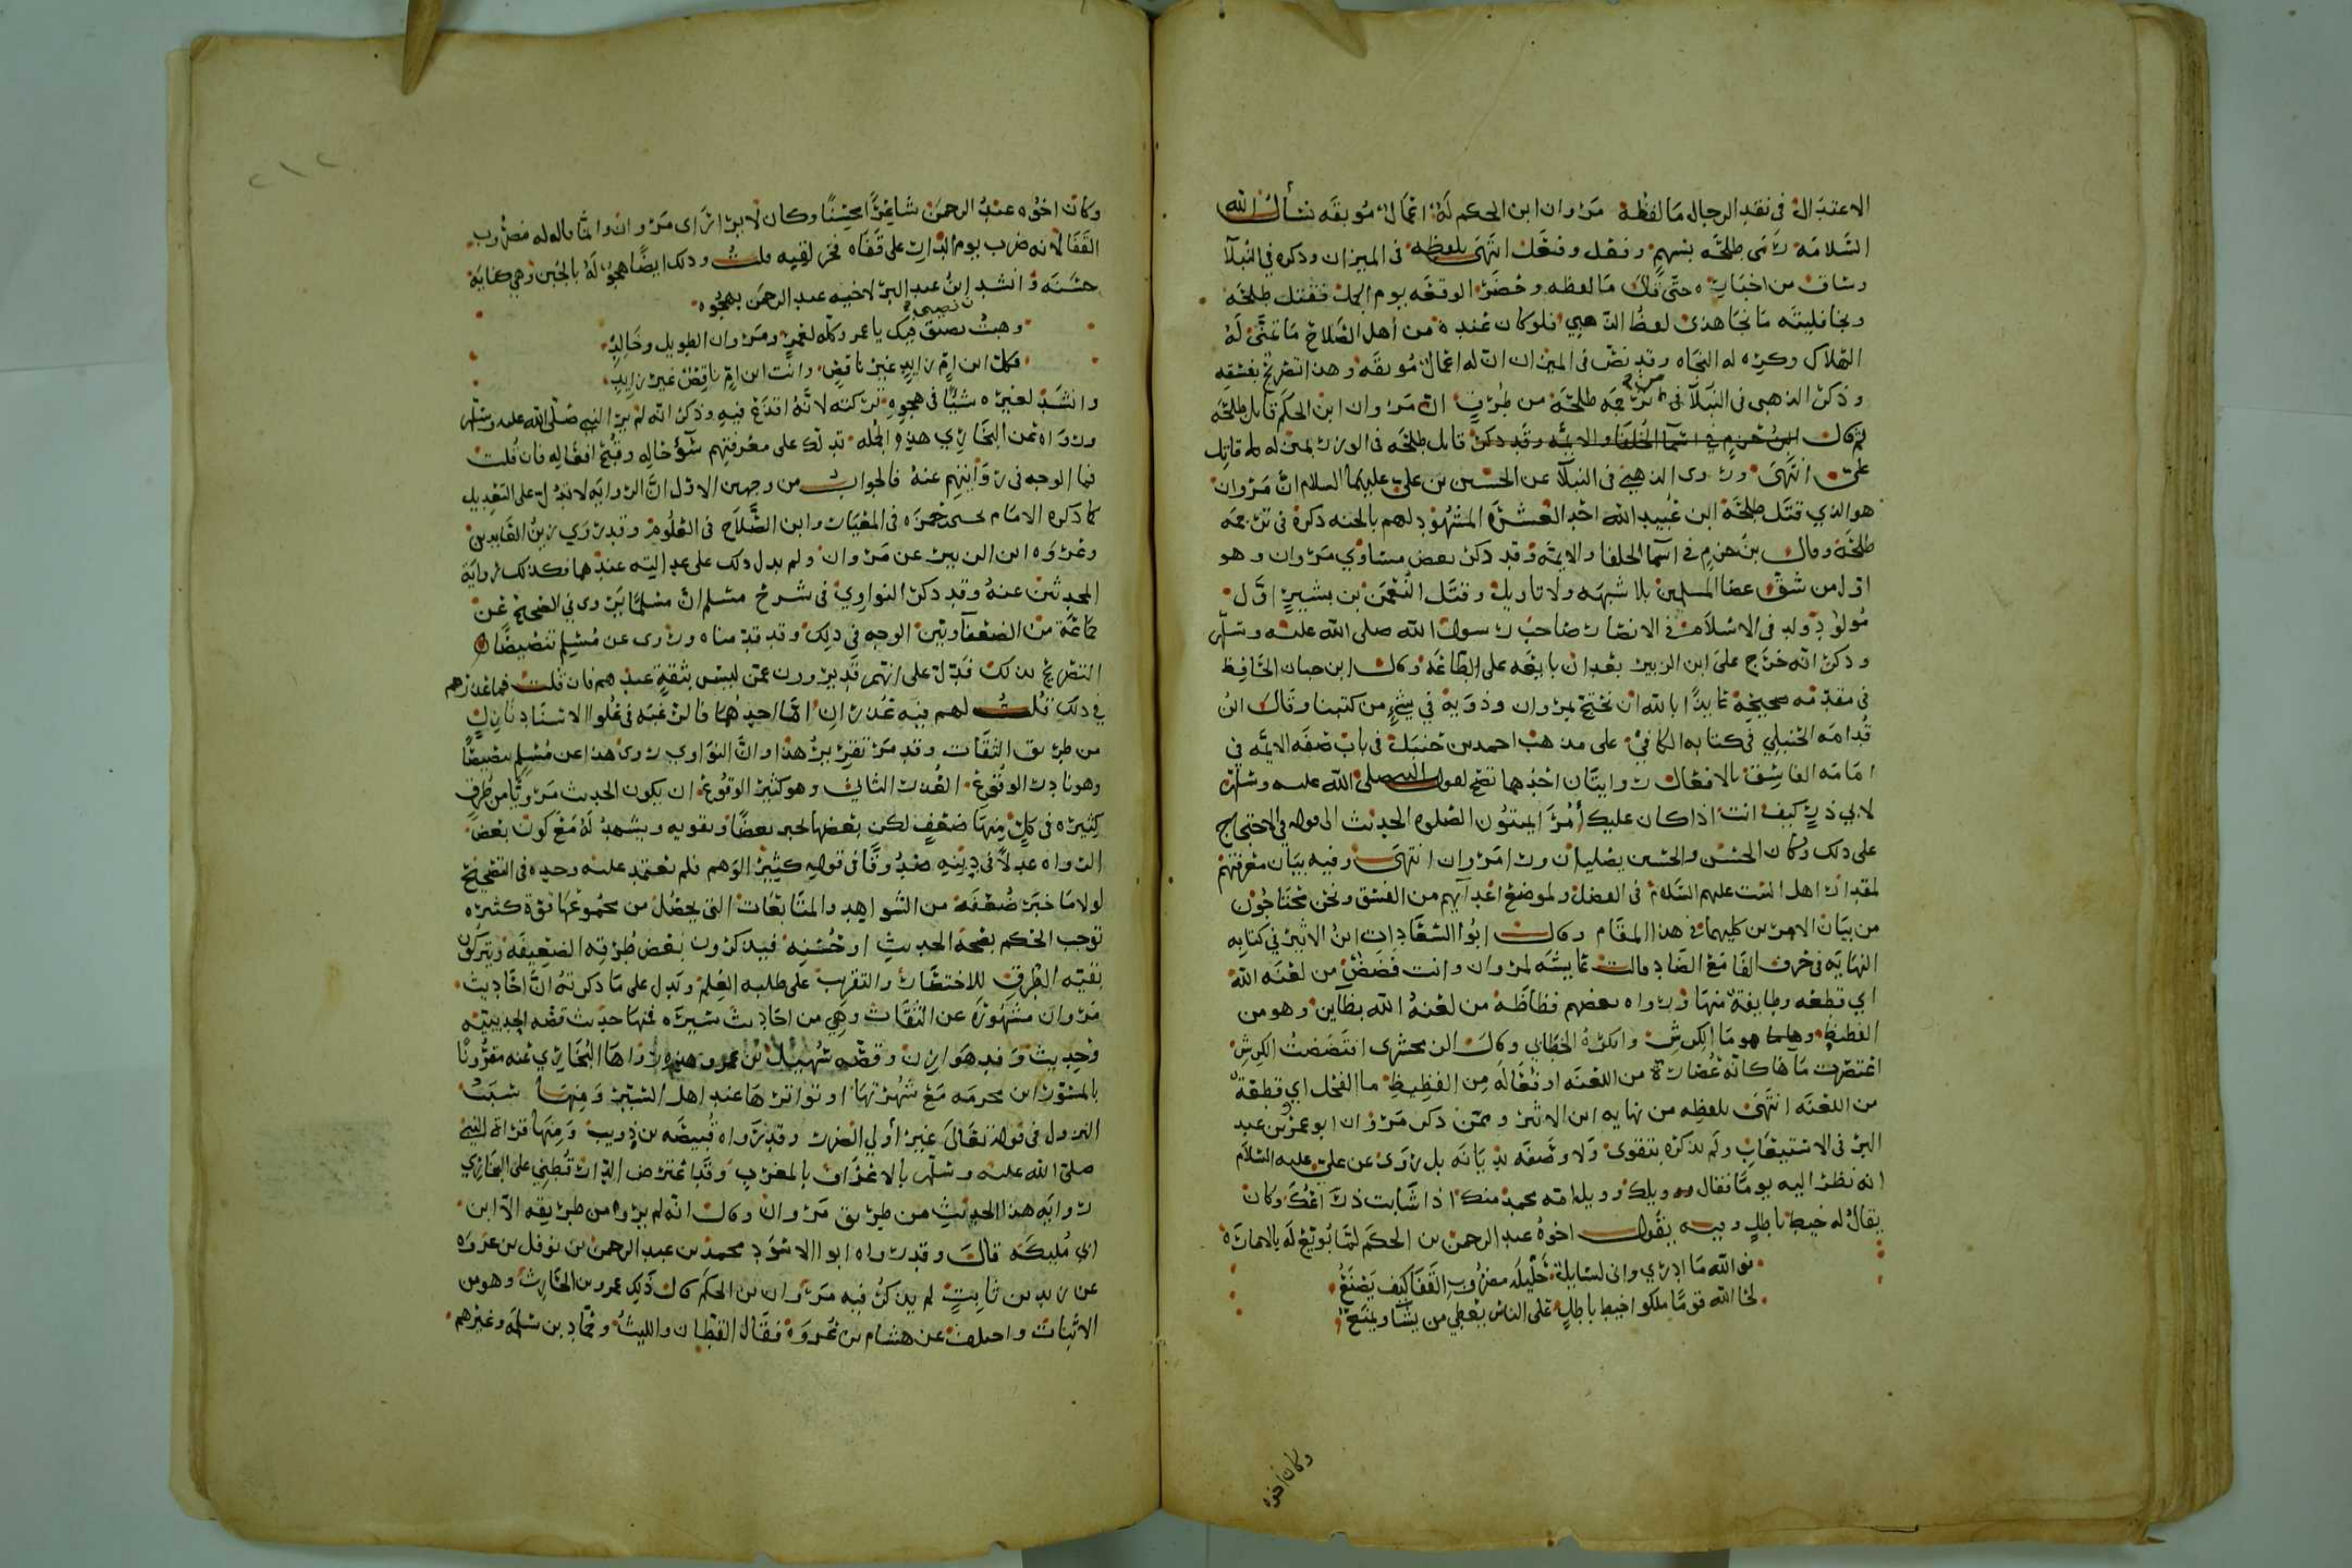 الاعتدال في نقد الرجال ما لفظه مروان ابن الحكم له اعمال موبقه نسأل الله
السلامه رمى طلحه بسهم وفعل وفعل انتهى بلفظه في الميزان وذكره في النبلآ
وساق من اخباره حتى قال ما لفظه وحضر الوقعه يوم الجمل فقتل طلحه
ونجا فليته ما نجا هذى لفظ الذهبي فلو كان عنده من أهل الصلاح ما تمنى له
الهلاك وكره له النجاه وقد نص في الميزان ان له اعمال موبقه وهذا تصريح بفسقه
وذكر الذهبي في النبلآ في ترجمه طلحه من طرق ان مروان ابن الحكم قاتل طلحه
ثم قال ابن حزم في اسما الخلفا والايمه وقد ذكر قاتل طلحه في الوزر بمنزله قاتل
علي انتهى وروى الذهبي في النبلآ عن الحسين بن علي عليهما السلام ان مروان
هو الذي قتل طلحه ابن عبيد الله احد العشره المشهود لهم بالجنه ذكره في ترجمه
طلحه وقال بن حزم في اسما الخلفا والايمه وقد ذكر بعض مساوي مروان وهو
اول من شق عصا المسلمين بلا شبهه ولا تاويل وقتل النعمن بن بشير اول
مولود ولد في الاسلام في الانصار صاحب رسول الله صلى الله عليه وسلم
وذكر انه خرج على ابن الزبير بعد ان بايعه على الطاعه وقال ابن حبان الحافظ
في مقدمه صحيحه عايذا بالله ان نحتج بمروان وذويه في شيء من كتبنا وقال ابن
قدامه الحنبلي في كتابه الكافي على مذهب احمد بن حنبل في باب صفه الايمه في
امامه الفاسق بالافعال روايتان احدهما تصح لقول النبي صلى الله عليه وسلم
لابي ذر كيف انت اذا كان عليك أمرا يميتون الصلوه الحديث الى قوله في الاحتجاج
على ذلك وكان الحسن والحسين يصليان ورا مروان انتهى وفيه بيان معرفتهم
لمقدار اهل البيت عليهم السلام في الفضل ولموضع اعدآيهم من الفسق ونحن محتاجون
من بيان الامرين كليهما في هذا المقام وقال ابوا السعادات ابن الاثير في كتابه
النهايه في حرف الفا مع الضاد قالت عايشه لمروان وانت فضض من لعنه الله
اي قطعه وطايفه منها ورواه بعضهم فظاظه من لعنه الله بظآين وهو من
الفظيظ وهو ما الكرش وانكره الخطابي وقال الزمحشرى افتضضت الكرش
اعتصرت مآها كانه عصارة من اللعنه او فعاله من الفظيظ ما الفحل اي قطعة
من اللعنه انتهى بلفظه من نهايه ابن الاثير وممن ذكر مروان ابو عمر بن عبد
البر في الاستيعاب ولم يذكره بتقوى ولا وصفه بديانه بل روى عن علي عليه السلام
انه نظر اليه يوما فقال ويلك وويل امه محمد منك اذا شابت ذراعك وكان
يقال له خيط باطل وفيه يقول اخوه عبد الرحمن بن الحكم لما بويع له بالاماره
فوالله ما ادري واني لسايل حليله مضروب القفا كيف يصنع
لحا الله قوما ملكوا خيط باطل على الناس يعطي من يشا ويمنع
وكان اخوه
٢١٢
وكان اخوه عبد الرحمن شاعرا محسنا وكان لا يرى اراى مروان وانما قال له مضروب
القفا لانه ضرب يوم الدار على قفاه فخر لفيه قلت وذلك ايضا هجو له بالجبن وهي كنايه
حسنه وانشد ابن عبد البر لاخيه عبد الرحمن يهجوه
وهبت نصيبي فيك يا عمر وكله لعمر ومروان الطويل وخالد
فكل ابن ام زايد غير ناقص وانت ابن ام ناقص غير زايد
وانشد لغيره شيا في هجوه تركته لانه اقذع فيه وذكر انه لم ير النبي صلى الله عليه وسلم
ورواه عن البخاري هذه الجمله تدلك على معرفتهم سؤ حاله وقبح افعاله فان قلت
فما الوجه في روايتهم عنه فالجواب من وجهين الاول ان الروايه لا تدل على التعديل
كما ذكره الامام يحيى بن حمزه في المعيار وابن الصلاح في العلوم وقد روى زين العابدين
وعروه ابن الزبير عن مروان ولم يدل ذلك على عدالته عندهما فكذلك روايه
المحدثين عنه وقد ذكر النواوي في شرح مسلم ان مسلما يروى في الصحيح عن
جماعه من الضعفآ وبين الوجه في ذلك وقد قدمناه وروى عن مسلم تنصيصا
التصريح بذلك فدل على انهم قد يروون عمن ليس بثقه عندهم فان قلت فما عذرهم
في ذلك قلت لهم فيه عذران اما احدهما فالرغبه في علو الاسناد
من طريق الثقات وقد مر تقرير هذا وان النواوي روى هذا عن مسلم تنصيصا
وهو نادر الوقوع العذر الثاني وهو كثير الوقوع ان يكون الحديث مرويا من طرق
كثيره في كل منها ضعف لكن بعضها يجبر بعضا ويقويه ويشهد له مع كون بعض
الرواه عدلا في دينه صدوقا في قوله كثير الوهم فلم يعتمد عليه وحده في التصحيح
لولا ما جبر ضعفه من الشواهد والمتابعات التي يحصل من مجموعها قوة كثيره
توجب الحكم بصحه الحديث او حسنه فيذكرون بعض طرقه الضعيفه ويتركون
بقيه الطرق للاختصار والتقريب على طلبه العلم ويدل على ما ذكرته ان احاديث
مروان مشهوره عن الثقات وهي من احاديث يسيره فمنها حديث قصه الحديبيه
وحديث وفد هوازن وقصه سهيل بن عمرو وهذه رواها البخاري عنه مقرونا
بالمسور ابن مخرمه مع شهرتها او تواترها عند اهل السير ومنها سبب
النزول في قوله تعالى غير أولي الضرر وقد رواه قبيصه بن ذويب ومنها قراة النبي
صلى الله عليه وسلم بالاعراف بالمغرب وقد اعترض الدار قطني على البخاري
روايه هذا الحديث من طريق مروان وقال انه لم يروه من طريقه الا ابن
ابي مليكه قال وقد رواه ابوا الاسود محمد بن عبد الرحمن بن نوفل بن عروه
عن زيد بن ثابت لم يذكر فيه مروان بن الحكم قال ذلك عمرو بن الحارث وهو من
الاثبات واختلف عن هشام بن عروه فقال القطان والليث وحماد بن سلمه وغيرهم